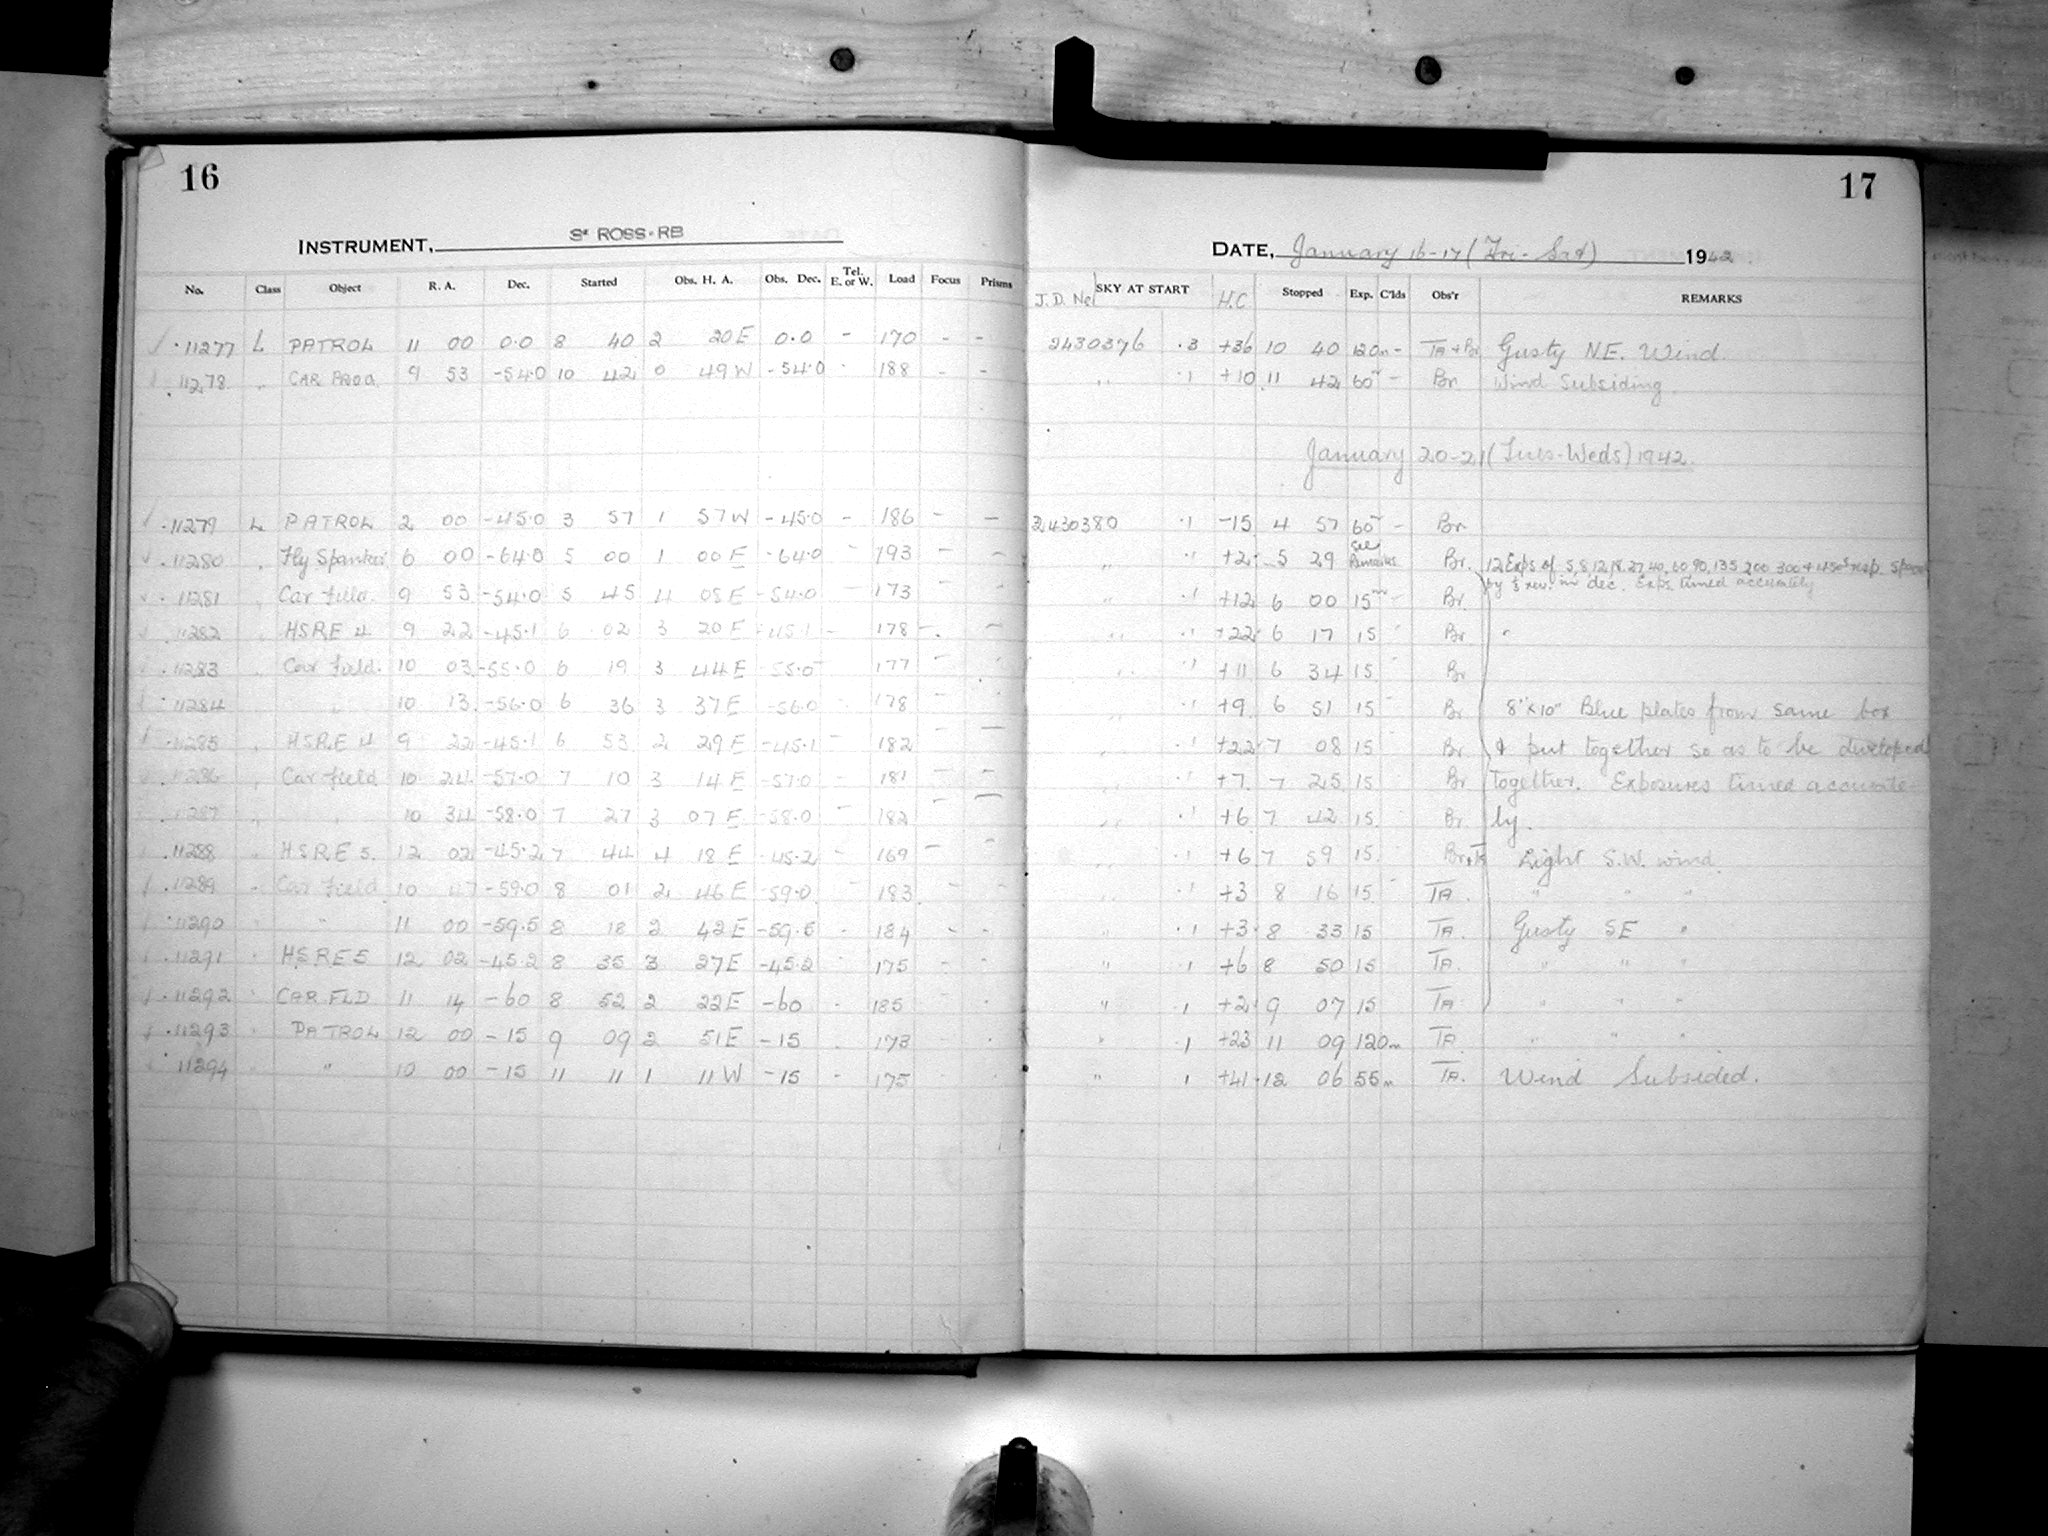 16
INSTRUMENT, ROSS-RB
No. Class Object R. A. Dec. Started Obs. H. A. Obs. Dec. Tel. E. or W. Load Focus Prisms
11277 L PATROL 11 00 0.0 8 40 2 20 E 0.0 - 170 - -
11278 " 9 53 -54.0 10 42 0 49 W -54.0 - 188 - -
11279 L PATROL 2 00 -45.0 3 57 1 57 W -45.0 - 186 - -
11280 " Fly Spanker 6 00 -64.0 5 00 1 00 E -64.0 - 193 - -
11281 " Car field. 9 53 -54.0 5 45 4 08 E -54.0 - 173 -
11282 " HSRE 4 9 22 -45.1 6 02 3 20 E -45.1 - 178 - -
11283 " Car field. 10 03 -55.0 6 19 3 44 E -55.0 177 -
11284 " 10 13 -56.0 6 36 3 37 E -56.0 178 -
11285 " HSRE 4 9 22 -45.1 6 53 2 29 E -45.1 - 182 - -
11286 " Car field 10 24 -57.0 7 10 3 14 E -57.0 - 181 - -
11287 " " 10 34 -58.0 7 27 3 07 E -58.0 - 182 - -
11288 " HSRE 5. 12 02 -45.2 7 44 4 18 E -45.2 - 169 - -
11289 " Car field 10 47 -59.0 8 01 2 46 E -59.0 - 183 - -
11290 " " 11 00 -59.5 8 18 2 42 E -59.5 - 184 - -
11291 " HSRE 5 12 02 -45.2 8 35 3 27 E -45.2 - 175 - -
11292 " CAR FLD 11 14 -60 8 52 2 22 E -60 - 185 - -
11293 " PATROL 12 00 -15 9 09 2 51 E -15 - 173 - -
11294 " " 10 00 -15 11 11 1 11 W -15 - 175 -
17
DATE, January 16-17 (Fri-Sat) 1942.
J. D. Nel SKY AT START H.C Stopped Exp. C'lds Obs'r REMARKS
2430376 .3 +36 10 40 120m - TA + Br Gusty N.E. Wind.
" .1 +10 11 42 60m - Br Wind Subsiding
January 20-21 (Tues-Weds) 1942.
2430380 .1 -15 4 57 60m - Br
" .1 +2 5 29 see Remarks Br. 12 Exps of 5, 8, 12, 18, 27, 40, 60, 90, 135, 200, 300 + 450s resp.
in dec. Exps timed accurately
" .1 +12 6 00 15m - Br
" .1 +22 6 17 15 Br "
" .1 +11 6 34 15 Br
" .1 +9 6 51 15 Br 8"x10" Blue plates from same box
" .1 +22 7 08 15 Br & put together so as to be developed
" .1 +7 7 25 15 Br together. Exposures timed accurate-
" .1 +6 7 42 15 Br ly.
" .1 +6 7 59 15 Light S.W. wind
" .1 +3 8 16 15 TA. " " "
" .1 +3 8 33 15 TA. Gusty SE "
" .1 +6 8 50 15 TA. " " "
" .1 +2 9 07 15 TA " " "
" .1 +23 11 09 120m TA " " "
" 1 +41 12 06 55m TA. Wind Subsided.